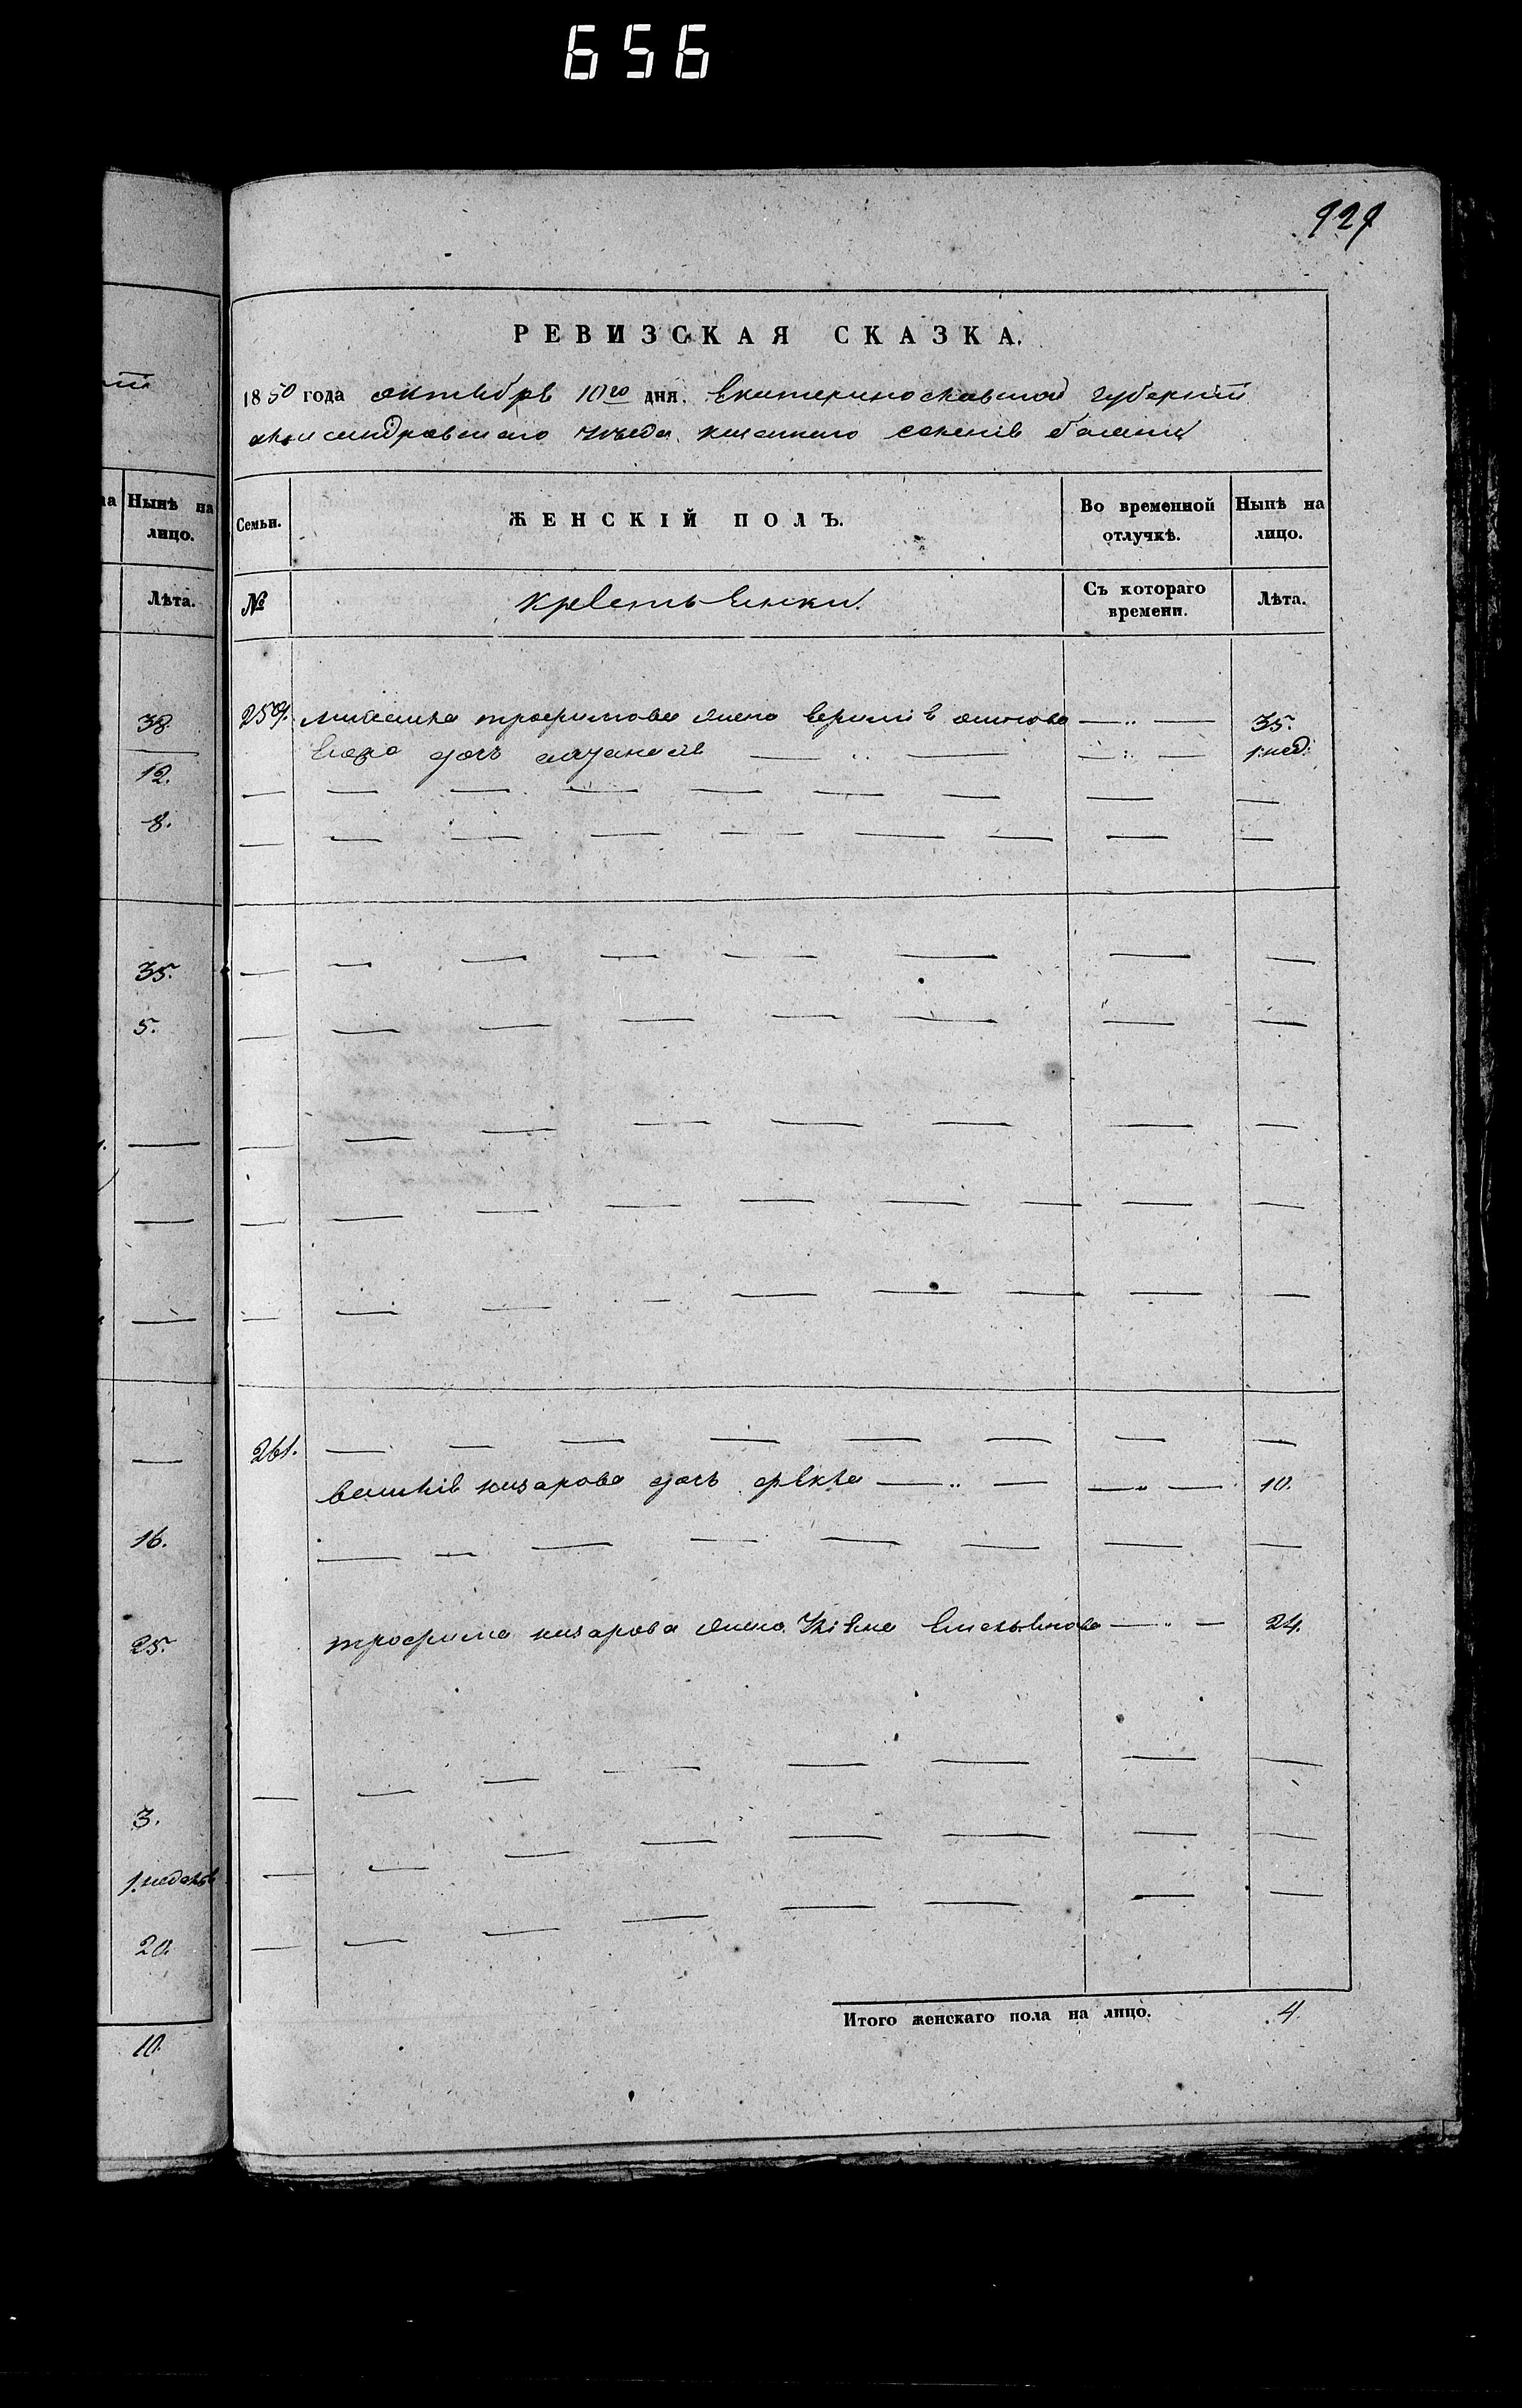 656
929
РЕВИЗСКАЯ СКАЗКА.
1850 года октября 10го дня. Екатеринославской губернiи
александровского уезда казенного селенiя балки
на Нынѣ на лицо.
Семьи. ЖЕНСКIЙ ПОЛЪ. Во временной отлучкѣ. Нынѣ на лицо.
Лѣта.
№ крестьянки. Съ котораго времени. Лѣта.
38.
259. трофимова жена 35.
его дочь 1 нед:
12.
8.
35.
5.
261.
назарова дочь фекла 10.
16.
трофима назарова жена Улiяна Емельянова 24.
25.
3.
1. неделя
20.
Итого женскаго пола на лицо. 4.
10.